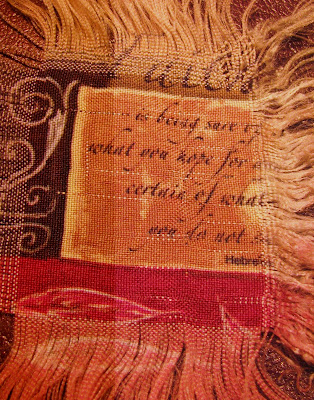 is being sure
what you hope for
certain of what
you do not
Hebre